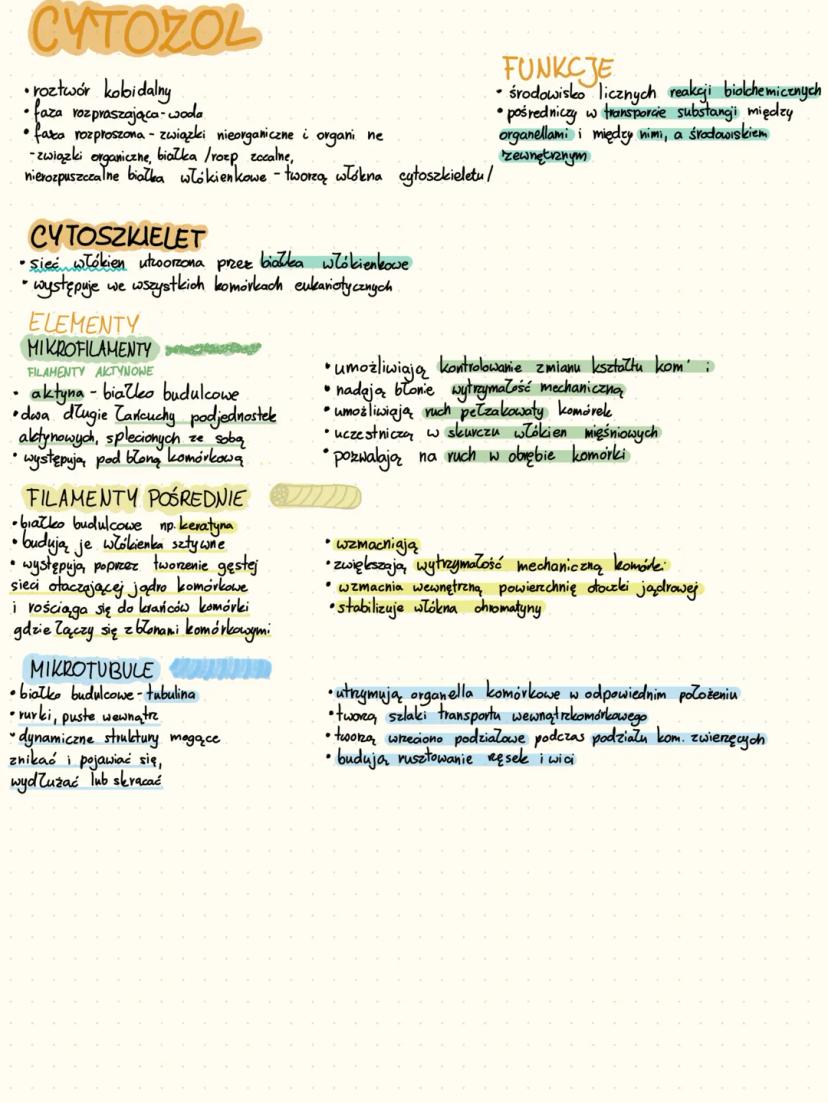 CYTOZOL
• roztwór koloidalny
• faza rozpraszająca - woda
• faza rozproszona - związki nieorganiczne i organi ne
- związki organiczne, białka /rozp zczalne,
nierozpuszczalne białka włókienkowe - tworzą włókna cytoszkieletu/
FUNKCJE
• środowisko licznych reakcji biolchemicznych
• pośredniczy w transporcie substancji między
organellami i między nimi, a środowiskiem
zewnętrznym
CYTOSZKIELET
• sieć włókien utworzona przez białka włókienkowe
• występuje we wszystkich komórkach eukariotycznych
ELEMENTY
MIKROFILAMENTY
FILAMENTY AKTYNOWE
• aktyna - białko budulcowe
• dwa długie łańcuchy podjednostek
aktynowych, splecionych ze sobą
• występują pod błoną komórkową
• umożliwiają kontrolowanie zmianu kształtu kom
• nadają błonie wytrzymałość mechaniczną
• umożliwiają ruch pełzakowaty komórek
• uczestniczą w skurczu włókien mięśniowych
• pozwalają na ruch w obrębie komórki
FILAMENTY POŚREDNIE
• białko budulcowe np. keratyna
• budują je włókienka sztywne
• występują poprzez tworzenie gęstej
sieci otaczającej jądro komórkowe
i rościąga się do krańców komórki
gdzie łączy się z błonami komórkowymi
• wzmacniają
• zwiększają wytrzymałość mechaniczną komórki
• wzmacnia wewnętrzną powierzchnię otoczki jądrowej
• stabilizuje włókna chromatyny
MIKROTUBULE
• białko budulcowe - tubulina
• rurki, puste wewnątrz
• dynamiczne struktury mogące
znikać i pojawiać się,
wydłużać lub skracać
• utrzymują organella komórkowe w odpowiednim położeniu
• tworzą szlaki transportu wewnątrzkomórkowego
• tworzą wrzeciono podziałowe podczas podziału kom. zwierzęcych
• budują rusztowanie rzęsek i wici